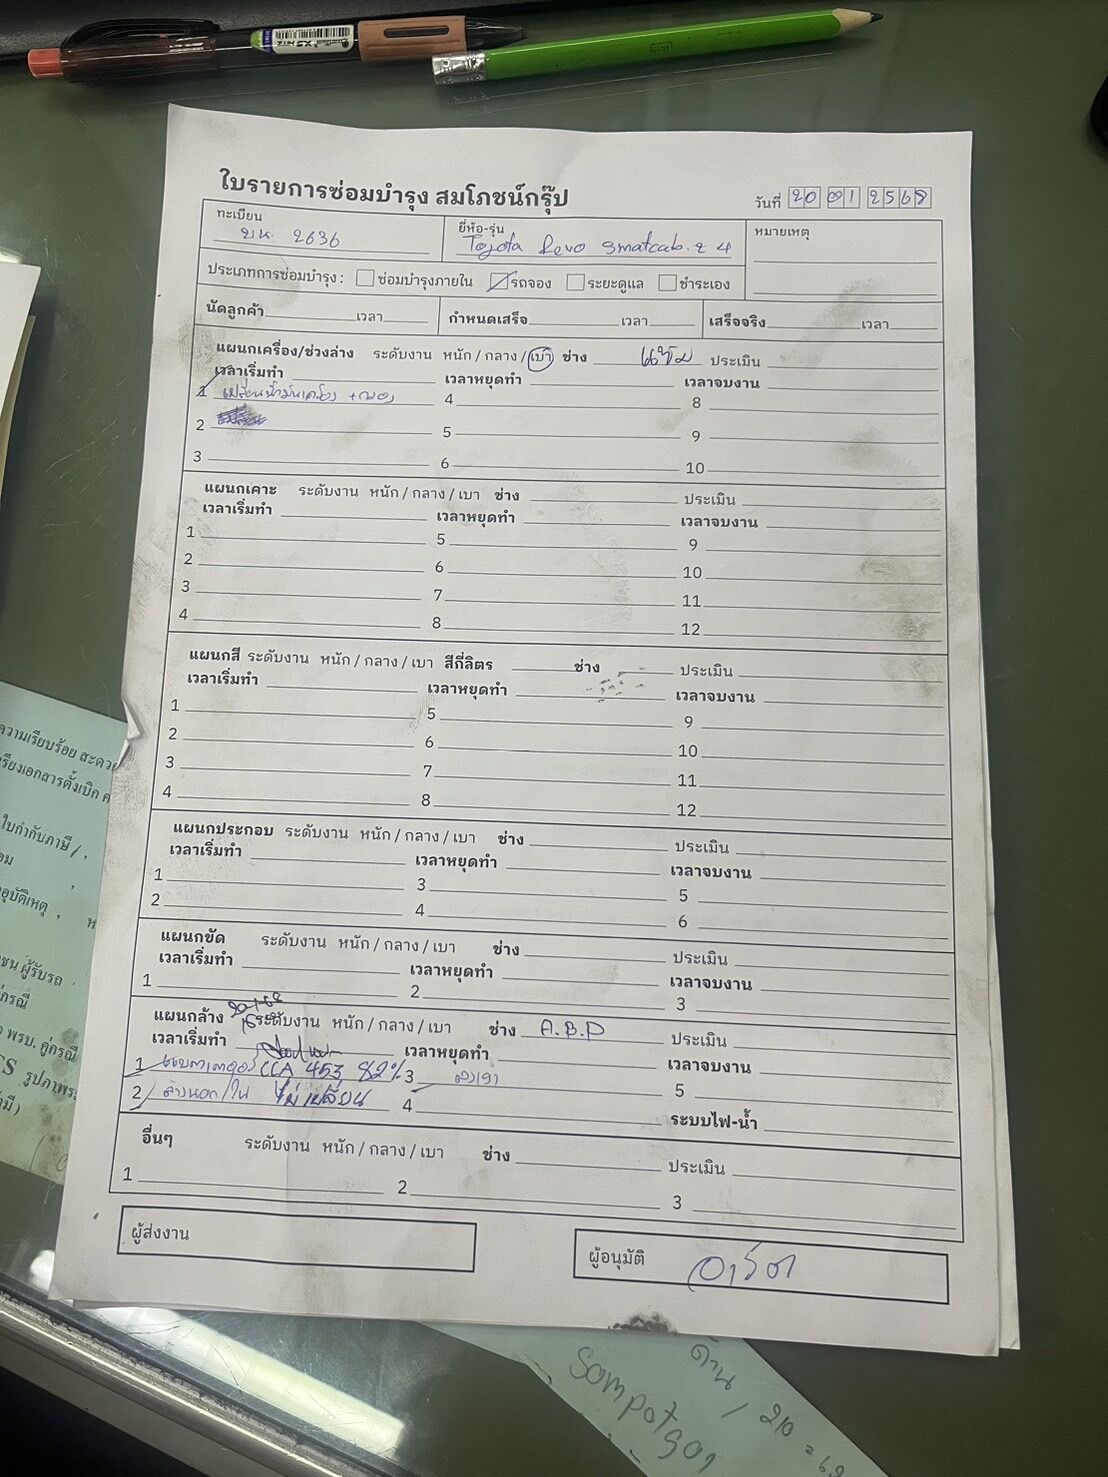 ใบรายการซ่อมบำรุง สมโภชน์กรุ๊ป
วันที่ 20 01 2568
ทะเบียน
ยี่ห้อ-รุ่น
หมายเหตุ
บห 2636
Toyota Revo Smatcab. z 4
ประเภทการซ่อมบำรุง : ซ่อมบำรุงภายใน รถจอง ระยะดูแล ชำระเอง
นัดลูกค้า เวลา กำหนดเสร็จ เวลา เสร็จจริง เวลา
แผนกเครื่อง/ช่วงล่าง ระดับงาน หนัก / กลาง / เบา ช่าง ประเมิน
เวลาเริ่มทำ เวลาหยุดทำ เวลาจบงาน
1 เปลี่ยนน้ำมันเครื่อง + กรอง 4 8
2 5 9
3 6 10
แผนกเคาะ ระดับงาน หนัก / กลาง / เบา ช่าง ประเมิน
เวลาเริ่มทำ เวลาหยุดทำ เวลาจบงาน
1 5 9
2 6 10
3 7 11
4 8 12
แผนกสี ระดับงาน หนัก / กลาง / เบา สีกี่ลิตร ช่าง ประเมิน
เวลาเริ่มทำ เวลาหยุดทำ เวลาจบงาน
1 5 9
2 6 10
3 7 11
4 8 12
แผนกประกอบ ระดับงาน หนัก / กลาง / เบา ช่าง ประเมิน
เวลาเริ่มทำ เวลาหยุดทำ เวลาจบงาน
1 3 5
2 4 6
แผนกขัด ระดับงาน หนัก / กลาง / เบา ช่าง ประเมิน
เวลาเริ่มทำ เวลาหยุดทำ เวลาจบงาน
1 2 3
20-1-68
แผนกล้าง ระดับงาน หนัก / กลาง / เบา ช่าง A.B.D ประเมิน
เวลาเริ่มทำ เวลาหยุดทำ เวลาจบงาน
1 แบตเตอรี่ CCA 453 82% 3 5
2 ล้างนอก/ใน ไม่เปลี่ยน 4 ระบบไฟ-น้ำ
อื่นๆ ระดับงาน หนัก / กลาง / เบา ช่าง ประเมิน
1 2 3
ผู้ส่งงาน
ผู้อนุมัติ
ความเรียบร้อย สะดวก
เรียงเอกสารตั้งเบิก
ใบกำกับภาษี /
อุบัติเหตุ ,
ผู้รับรถ
คู่กรณี
พรบ. คู่กรณี